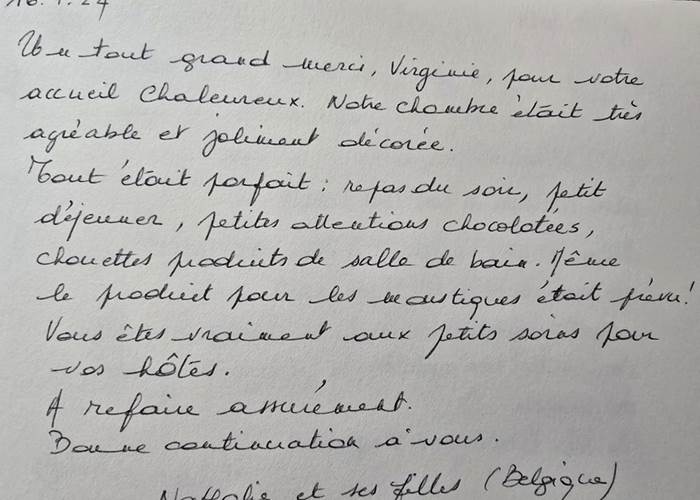 Un tout grand merci, Virginie, pour votre
accueil chaleureux. Notre chambre était très
agréable et joliment décorée.
Tout était parfait : repas du soir, petit
déjeuner, petites attentions chocolatées,
chouettes produits de salle de bain. Même
le produit pour les moustiques était prévu !
Vous êtes vraiment aux petits soins pour
vos hôtes.
A refaire assurément.
Bonne continuation à vous.
Nathalie et ses filles (Belgique)